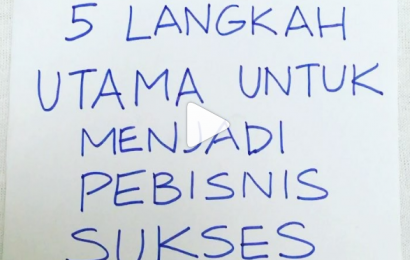 5 LANGKAH
UTAMA UNTUK
MENJADI
PEBISNIS
SUKSES